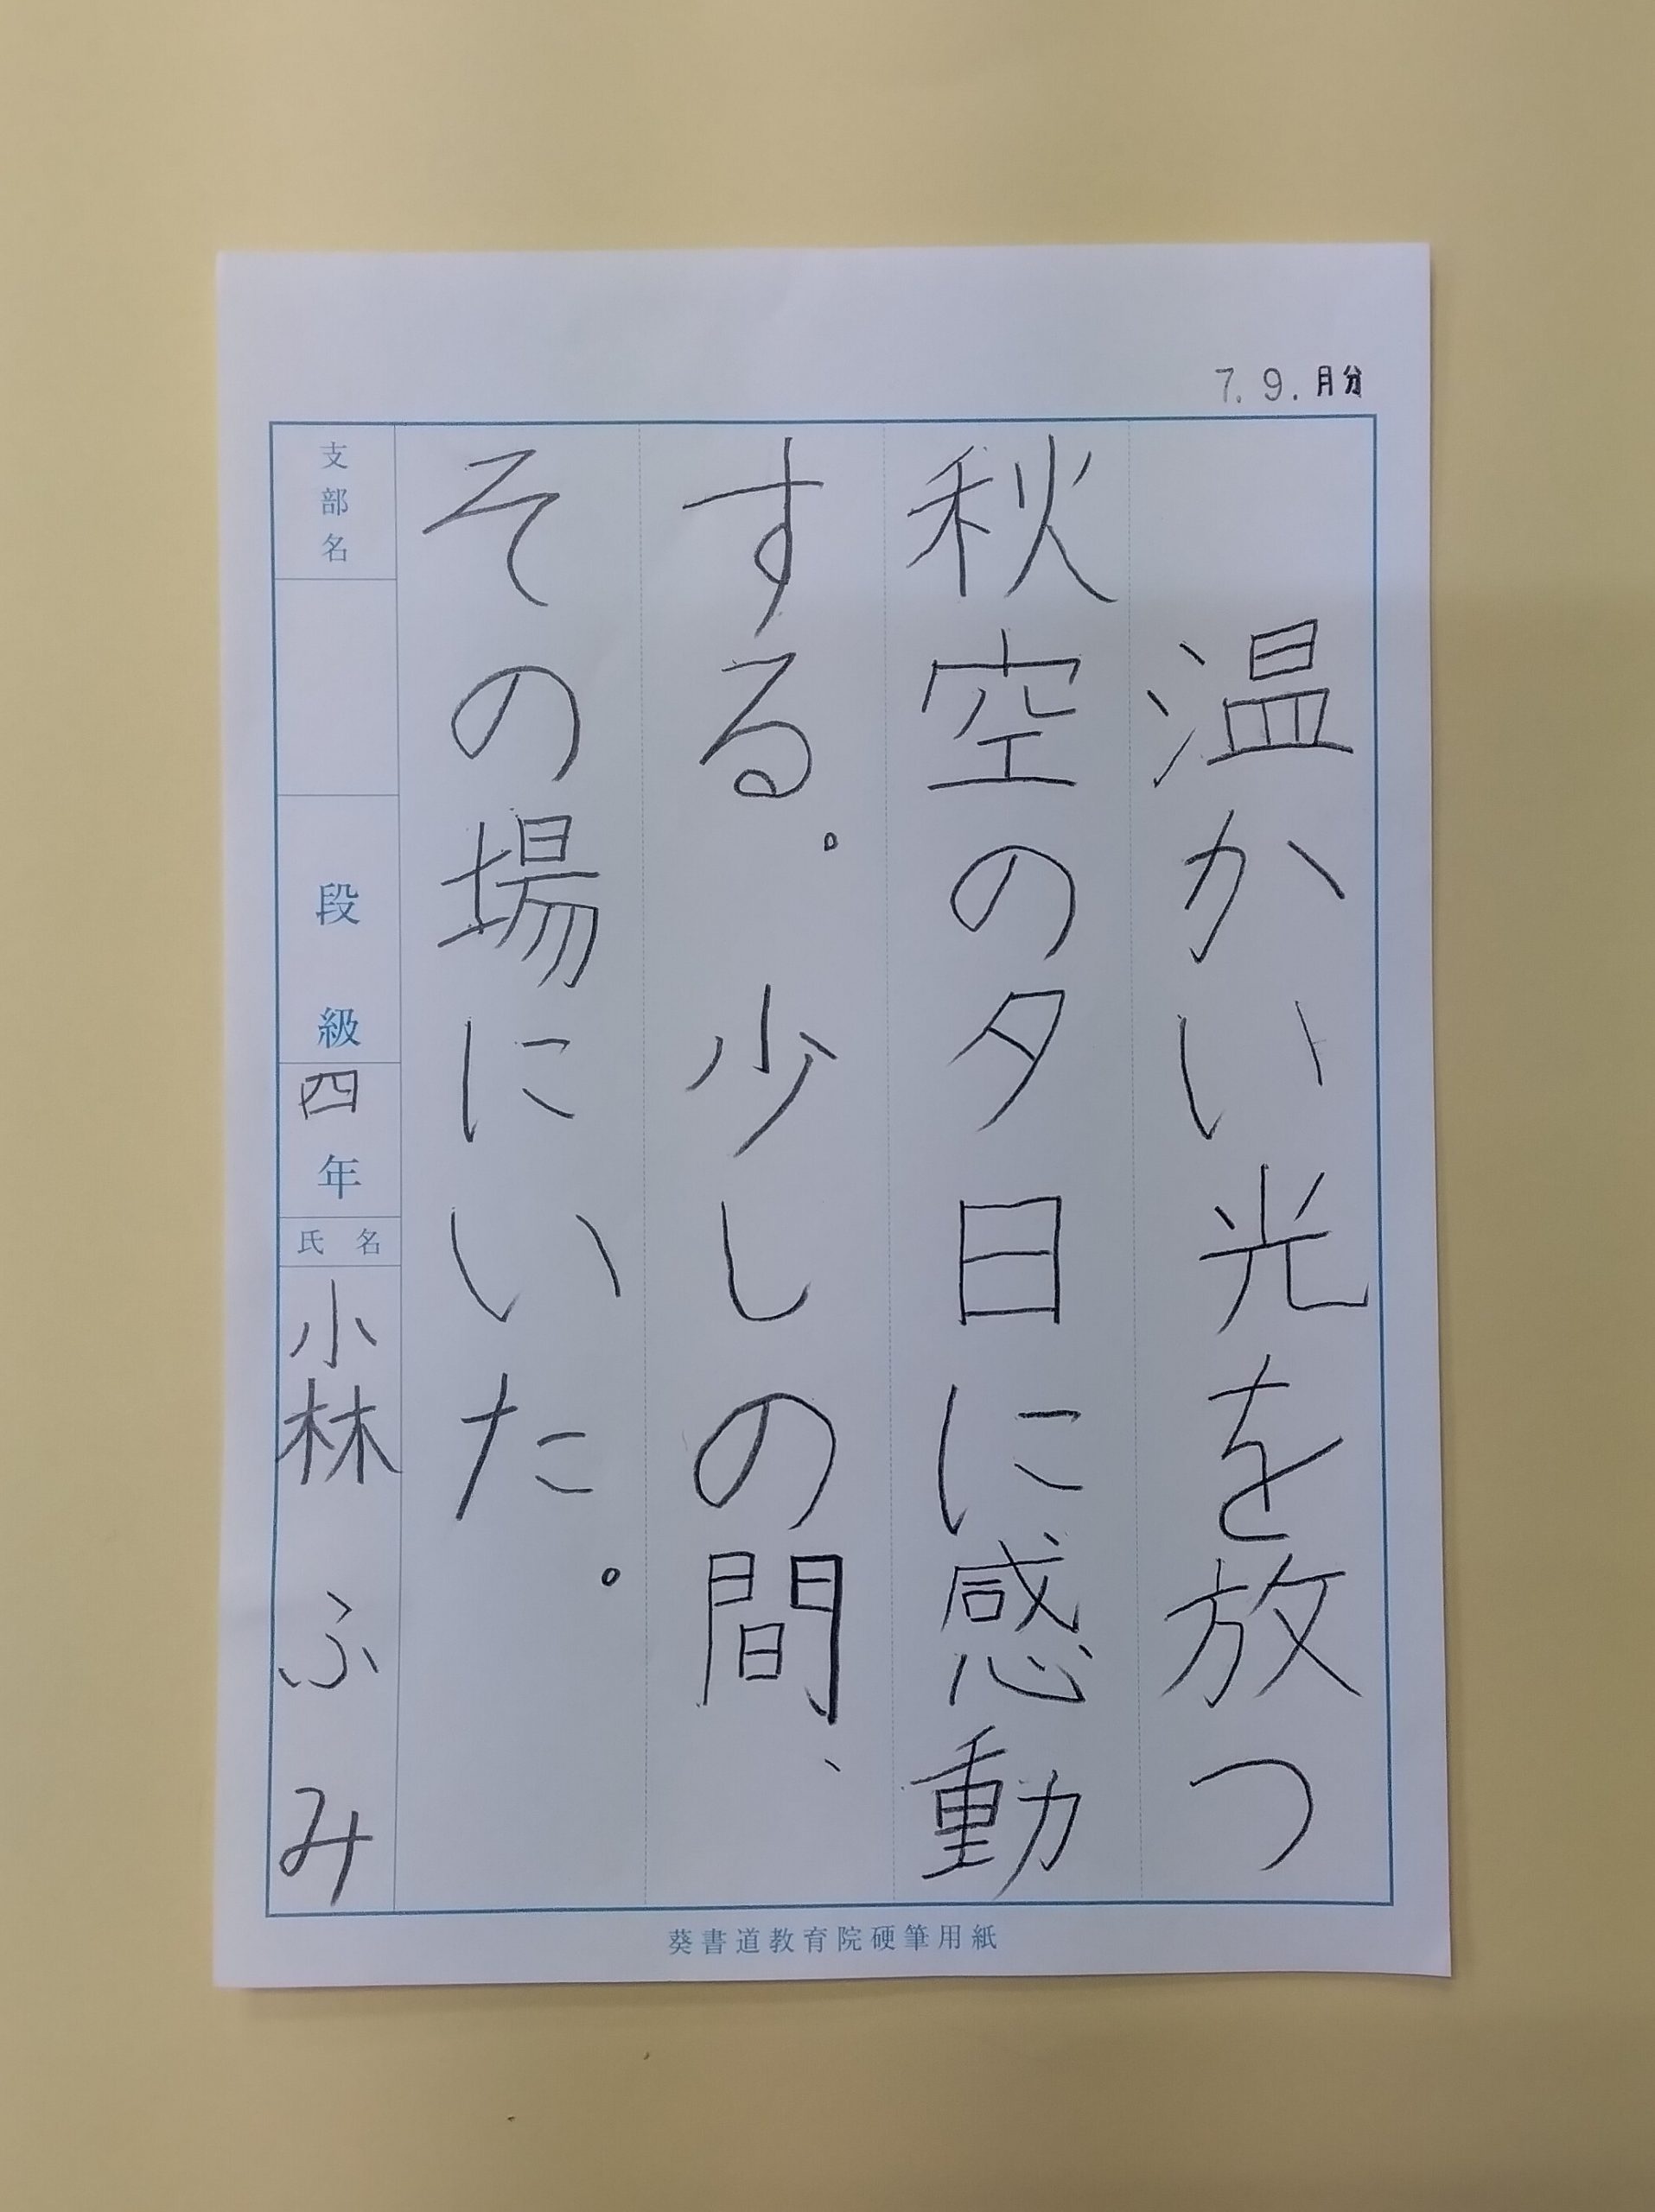 7. 9. 月分
温かい光を放つ
秋空の夕日に感動
する。少しの間、
その場にいた。
支部名
段級
四年
氏名
小林ふみ
葵書道教育院硬筆用紙